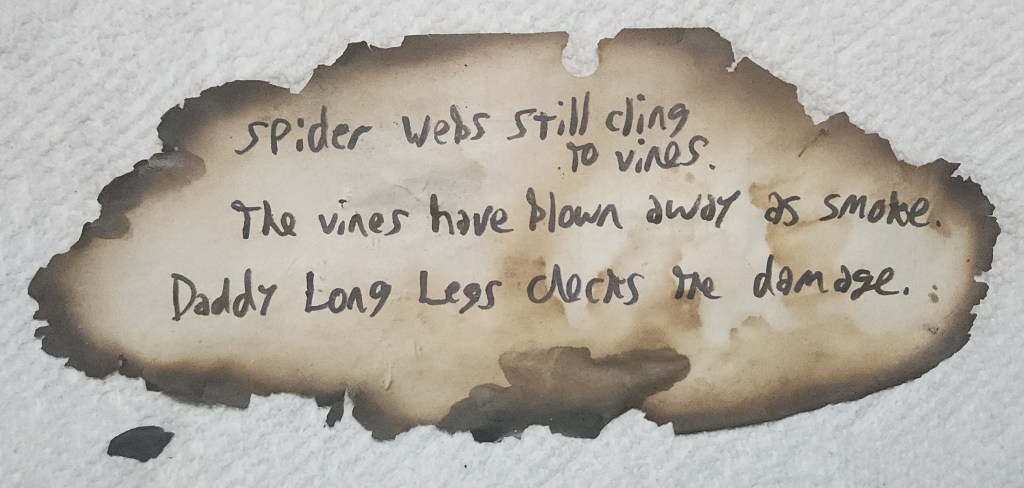 spider webs still cling
to vines.
The vines have blown away as smoke.
Daddy Long Legs checks the damage.